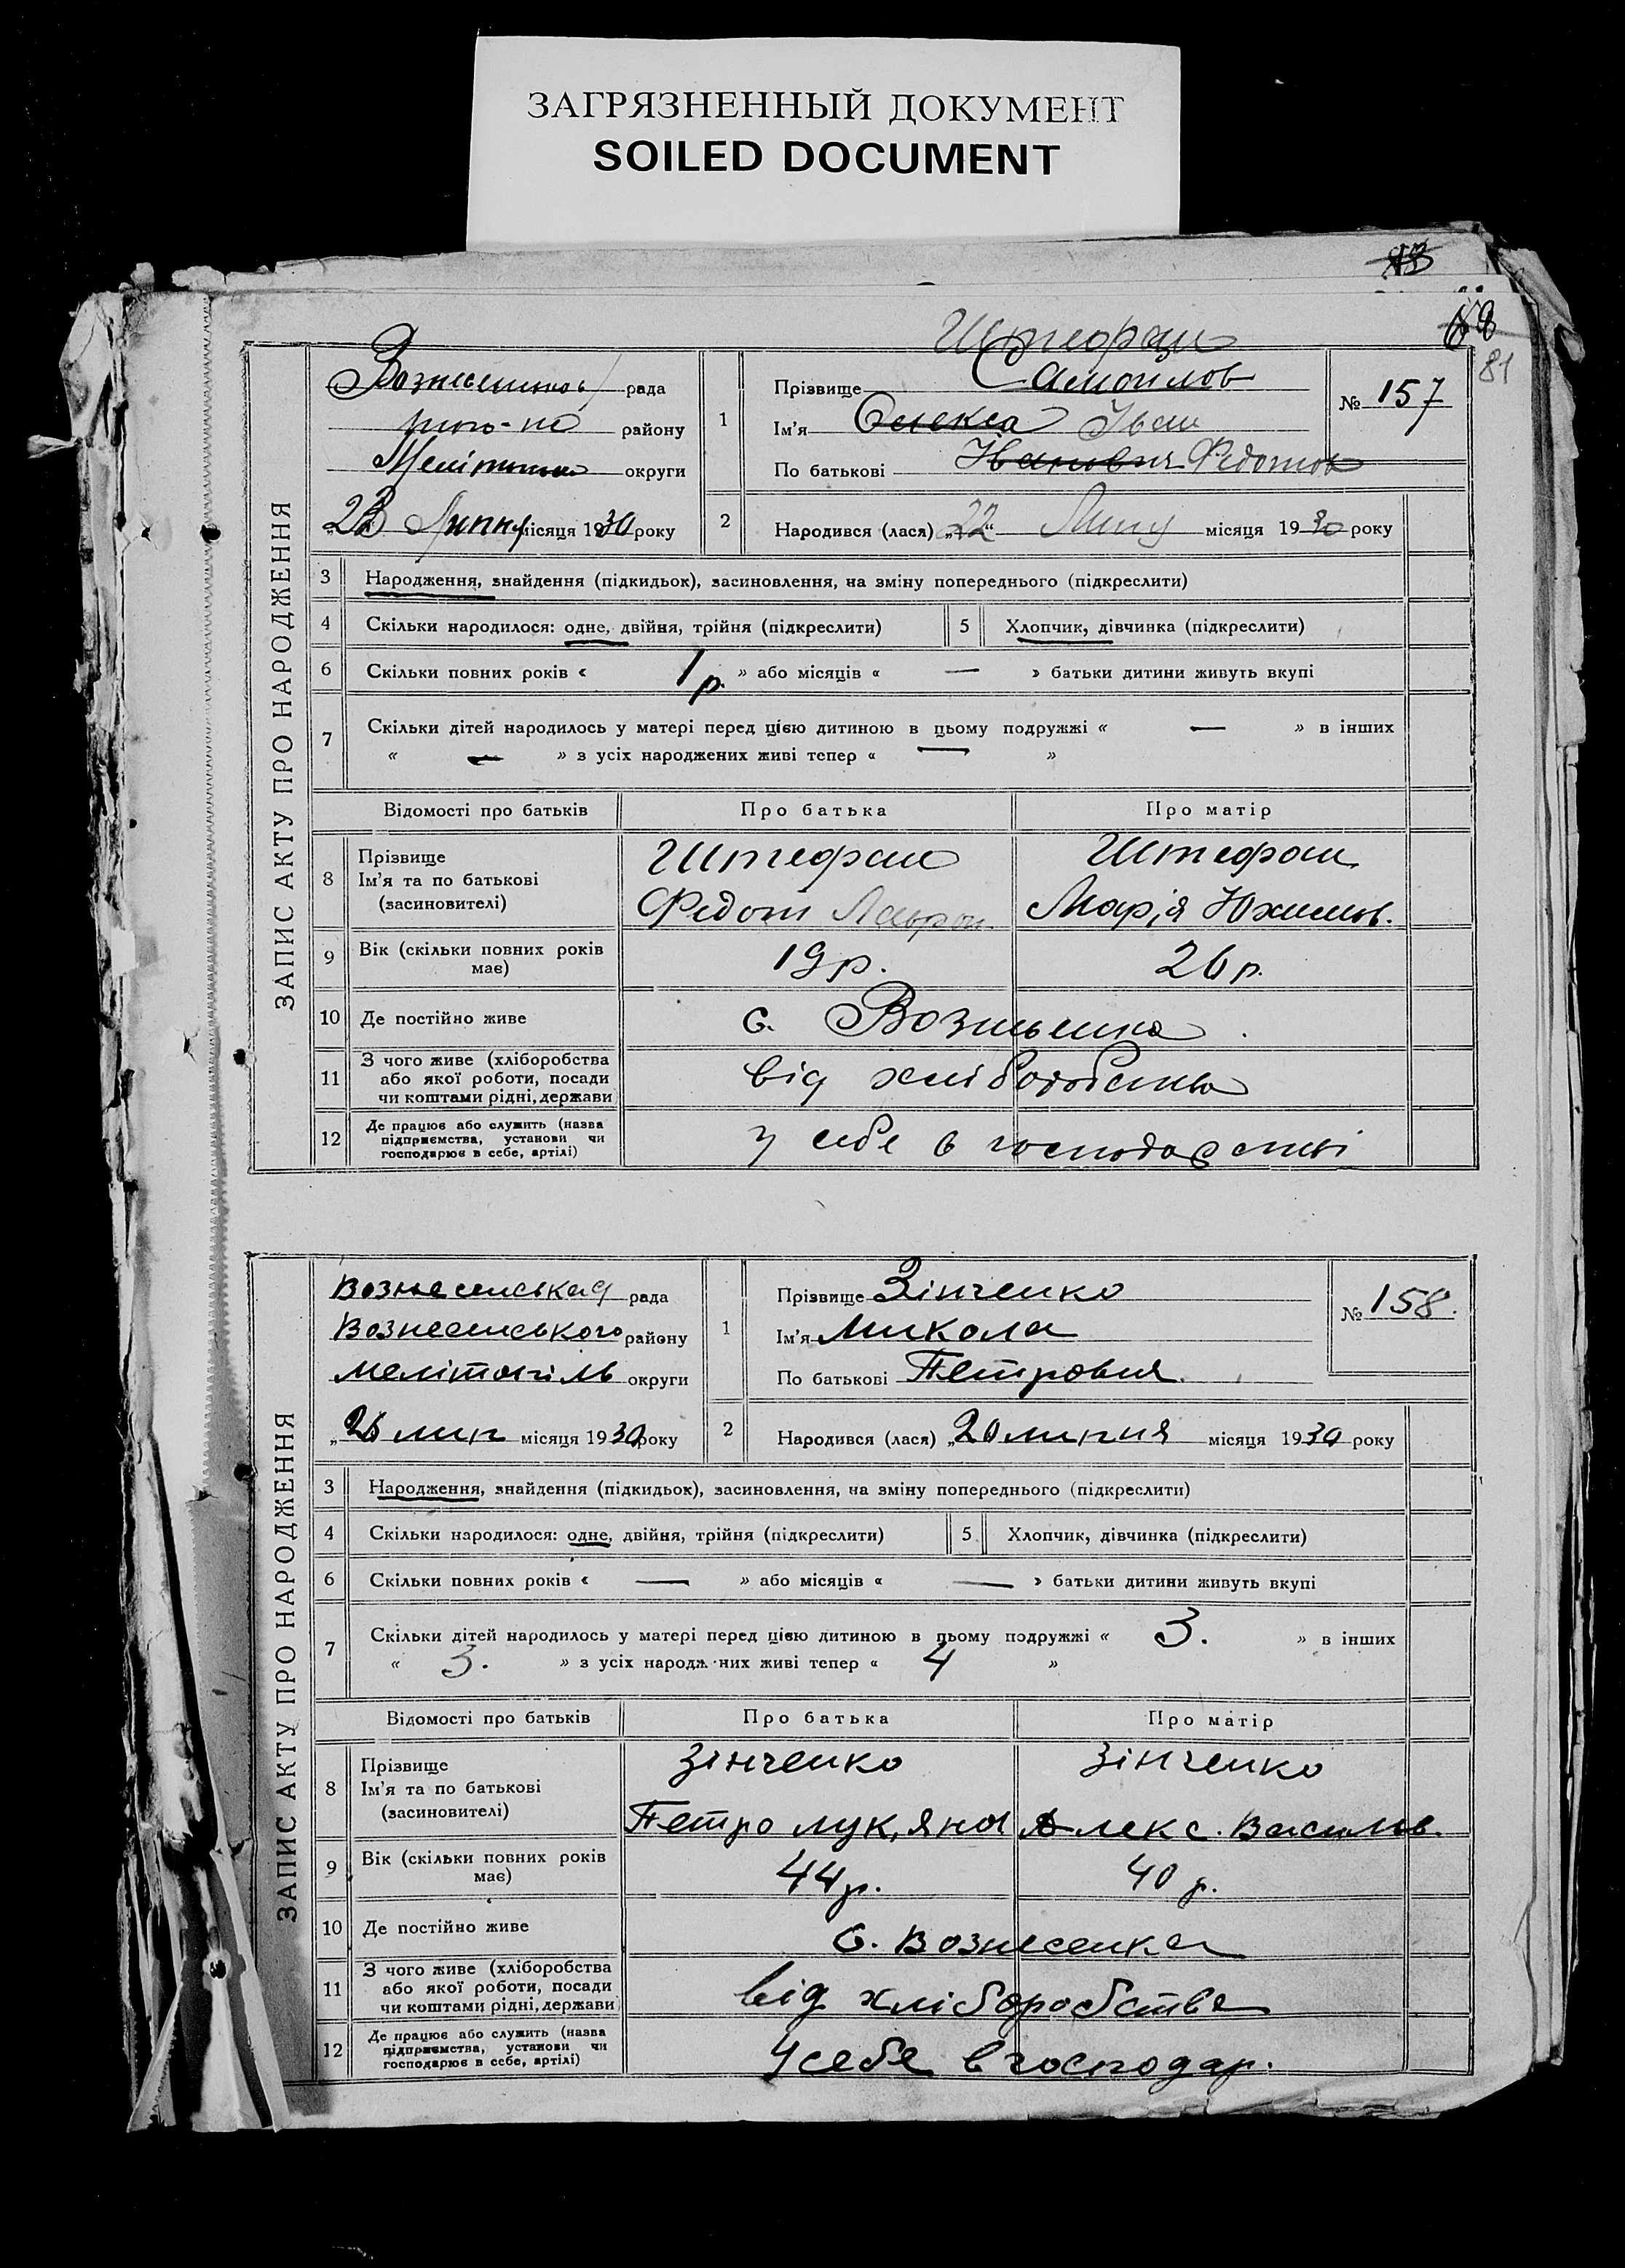 ЗАГРЯЗНЕННЫЙ ДОКУМЕНТ
SOILED DOCUMENT
81
ЗАПИС АКТУ ПРО НАРОДЖЕННЯ
Штефан
рада
району
округи
23 Липня місяця 1930 року
1
Прізвище Самоилов
Ім'я Олекса Іван
По батькові Іванович Федотов
№ 157
2
Народився (лася) „22“ Липня місяця 1930 року
3 Народження, знайдення (підкидьок), засиновлення, на зміну попереднього (підкреслити)
4 Скільки народилося: одне, двійня, трійня (підкреслити) 5 Хлопчик, дівчинка (підкреслити)
6 Скільки повних років « 1 р. » або місяців « — » батьки дитини живуть вкупі
7 Скільки дітей народилось у матері перед цією дитиною в цьому подружжі « — » в інших
« — » з усіх народжених живі тепер « — »
Відомості про батьків Про батька Про матір
8 Прізвище
Ім'я та по батькові
(засиновителі)
Штефан Штефан
Федот Марія Юхимов.
9 Вік (скільки повних років має) 19 р. 26 р.
10 Де постійно живе с. Вознесенка
11 З чого живе (хліборобства
або якої роботи, посади
чи коштами рідні, держави
від хліборобства
12 Де працює або служить (назва
підприємства, установи чи
господарює в себе, артілі)
у себе в господарстві
ЗАПИС АКТУ ПРО НАРОДЖЕННЯ
Вознесенская рада
Вознесенського району
Мелітопіль округи
„26 лип місяця 1930 року
1
Прізвище Зінченко
Ім'я Микола
По батькові Петрович
№ 158.
2
Народився (лася) „20 липня місяця 1930 року
3 Народження, знайдення (підкидьок), засиновлення, на зміну попереднього (підкреслити)
4 Скільки народилося: одне, двійня, трійня (підкреслити) 5 Хлопчик, дівчинка (підкреслити)
6 Скільки повних років « — » або місяців « — » батьки дитини живуть вкупі
7 Скільки дітей народилось у матері перед цією дитиною в цьому подружжі « 3. » в інших
« 3. » з усіх народжених живі тепер « 4 »
Відомості про батьків Про батька Про матір
8 Прізвище
Ім'я та по батькові
(засиновителі)
Зінченко Зінченко
Петро Лук,янов Алекс. Васильв.
9 Вік (скільки повних років має) 44 р. 40 р.
10 Де постійно живе с. Вознесенка
11 З чого живе (хліборобства
або якої роботи, посади
чи коштами рідні, держави
від хліборобства
12 Де працює або служить (назва
підприємства, установи чи
господарює в себе, артілі)
У себе в господар.